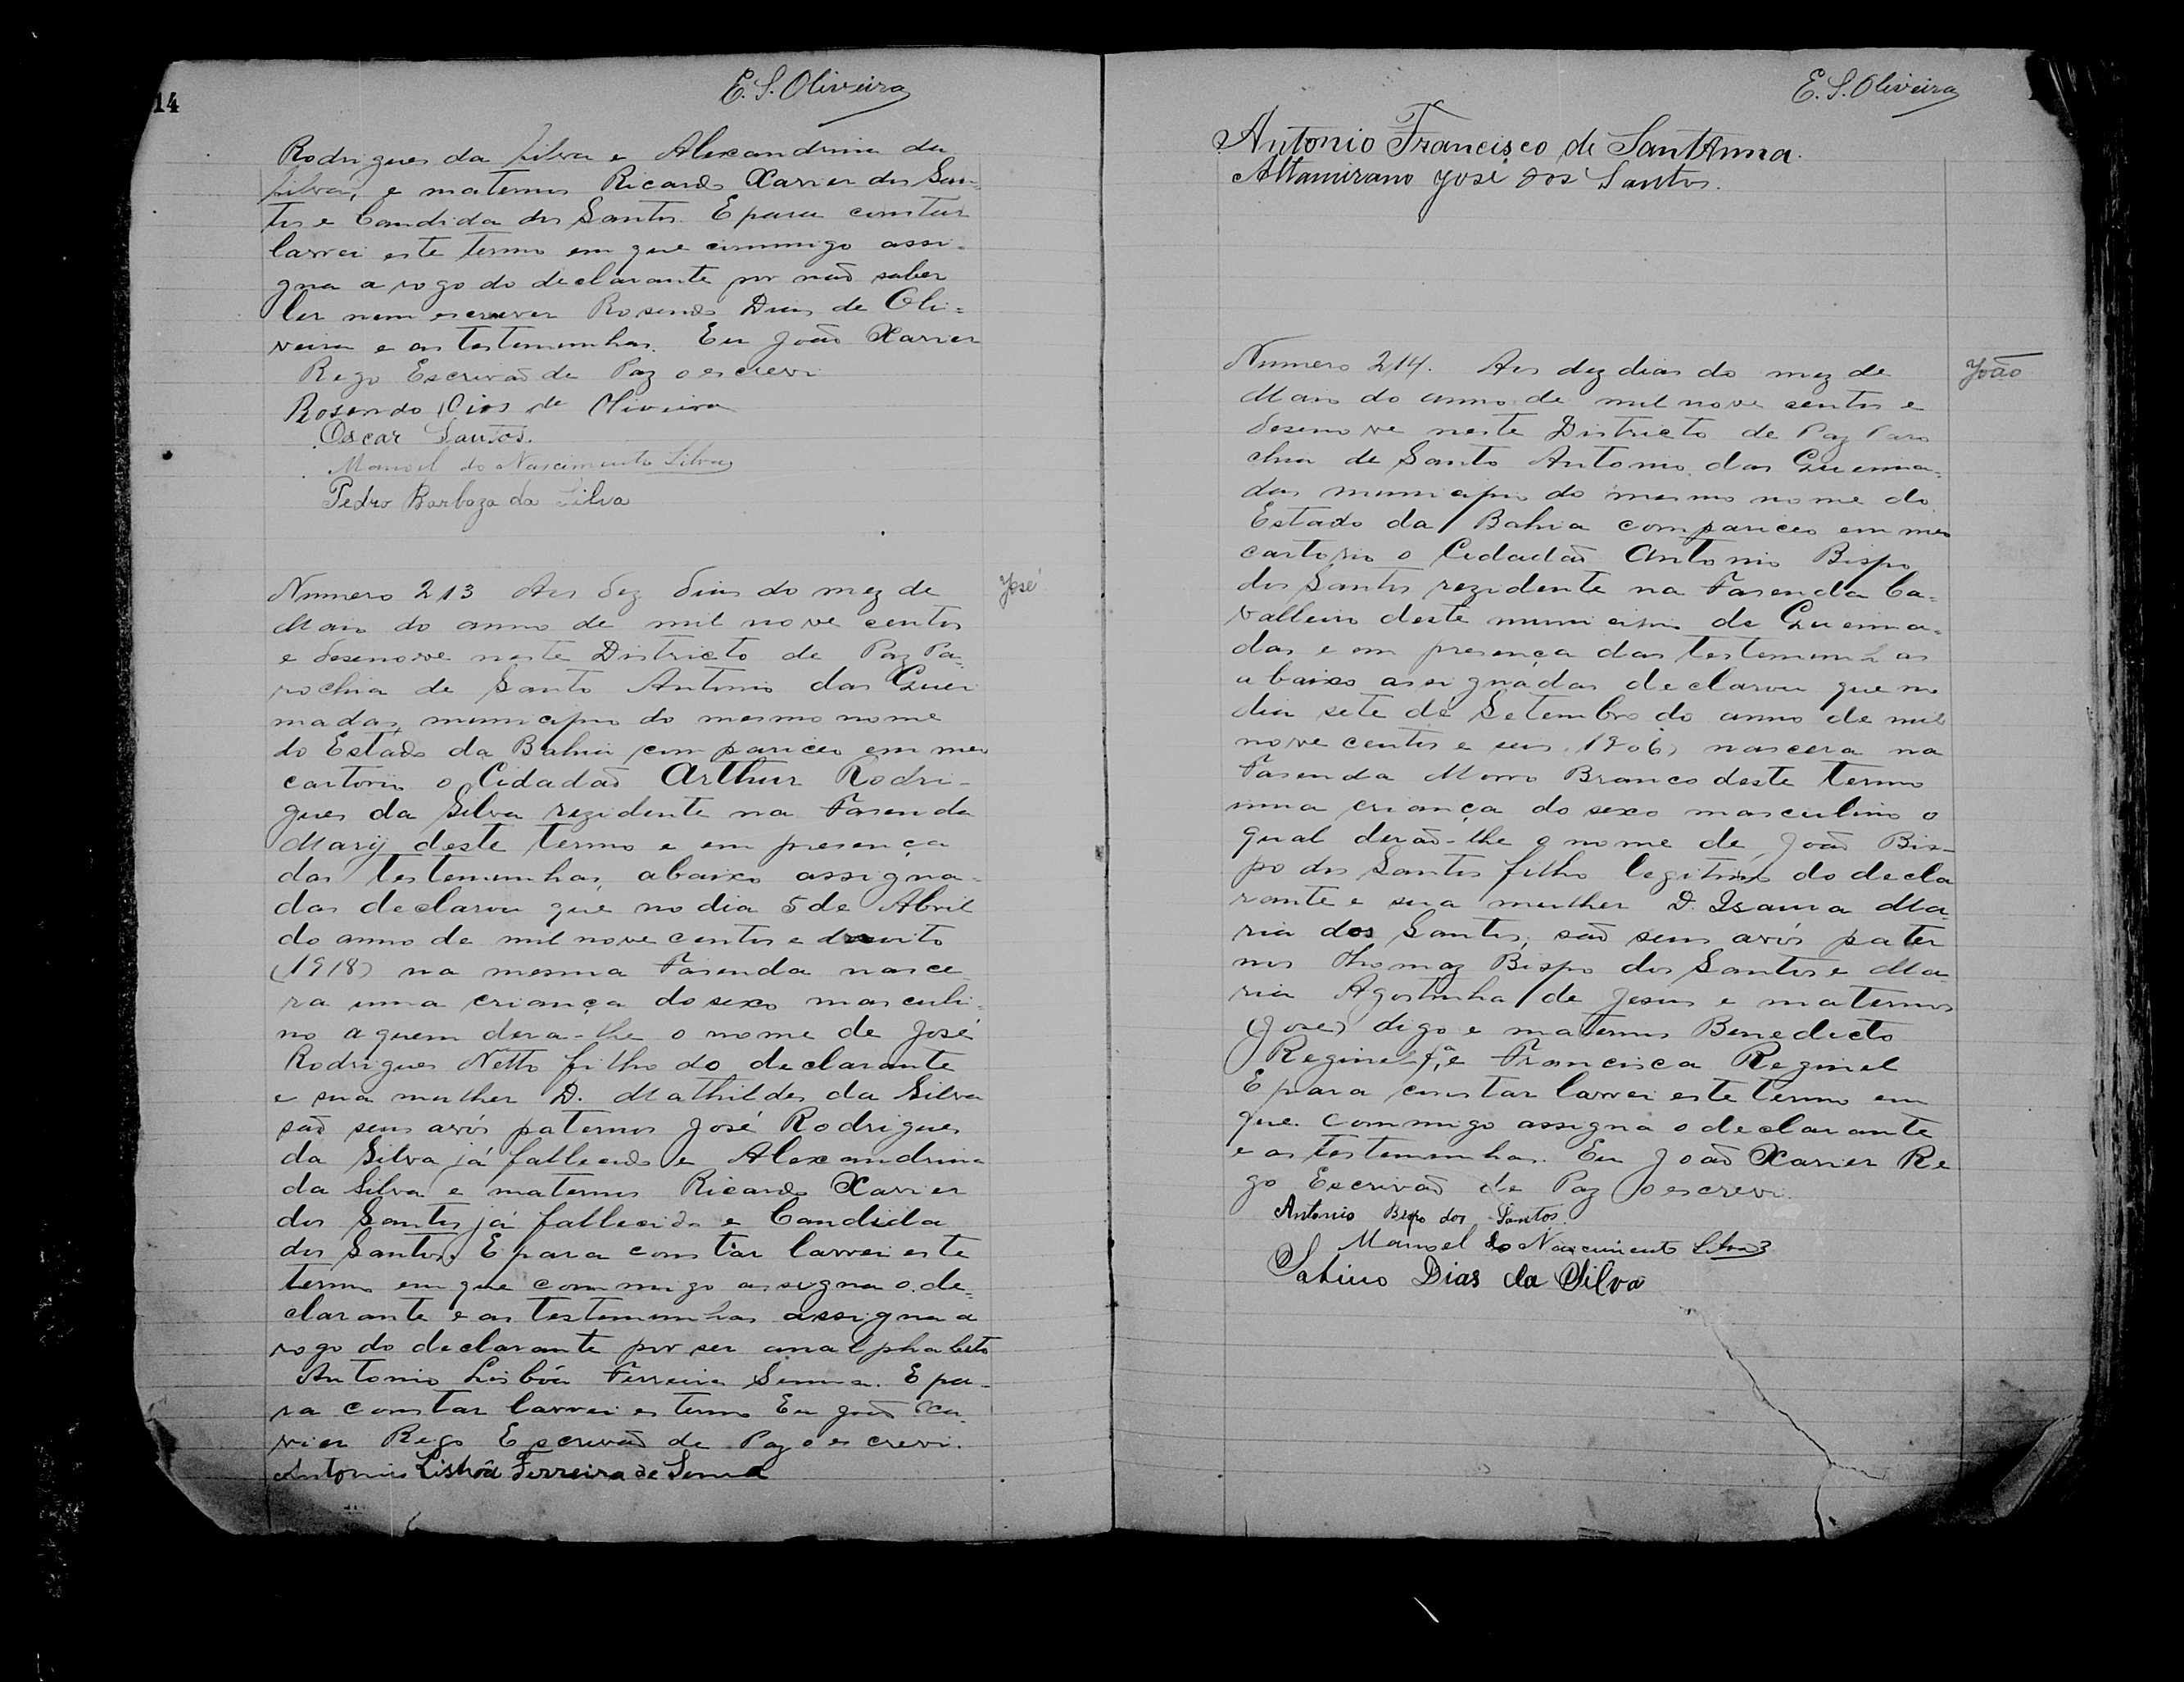 14
E. S. Oliveira
Rodrigues da Silva e Alexandrina da
Silva, e maternos Ricardo Xavier dos San-
tos e Candida dos Santos. E para constar
lavrei este termo em que commigo assi-
gna a rogo do declarante por não saber
ler nem escrever Rosendo Dias de Oli-
veira e as testemunhas. Eu João Xavier
Rego Escrivão de Paz o escrevi
Rosendo Dias de Oliveira
Oscar Santos.
Manoel do Nascimento Silva
Pedro Barboza da Silva
José
Numero 213 Aos dez dias do mez de
Maio do anno de mil nove centos
e desenove neste Districto de Paz Pa-
rochia de Santo Antonio das Quei
madas, municipio do mesmo nome
do Estado da Bahia compariceo em meu
cartorio o Cidadão Arthur Rodri-
gues da Silva rezidente na Fasenda
Mary deste termo e em presença
das testemunhas, abaixo assigna-
das declarou que no dia 5 de Abril
do anno de mil nove centos e dezoito
(1918) na mesma Fasenda nasce-
ra uma criança do sexo masculi-
no a quem dera-lhe o nome de José
Rodrigues Netto filho do declarante
e sua mulher D. Mathildes da Silva
são seus avós paternos José Rodrigues
da Silva já fallecido e Alexandrina
da Silva e maternos Ricardo Xavier
dos Santos já fallecido e Candida
dos Santos. E para constar lavrei este
termo em que commigo assigna o de-
clarante e as testemunhas assigna a
rogo do declarante por ser analphabeto
Antonio Lisbôa Ferreira Senna. E pa-
ra constar lavrei es termo Eu João Xa-
vier Rego Escrivão de Paz o escrevi.
Antonio Lisbôa Ferreira de Senna
E. S. Oliveira
Antonio Francisco de Sant'Anna.
Altamirano José dos Santos.
João
Numero 214. Aos dez dias do mez de
Maio do anno de mil nove centos e
desenove neste Districto de Paz Paro
chia de Santo Antonio das Queima-
das municipio do mesmo nome do
Estado da Bahia compariceo em meu
cartorio o Cidadão Antonio Bispo
dos Santos rezidente na Fasenda Ca-
valleiro deste municipio de Queima-
das e em presença das testemunhas
abaixo assignadas declarou que no
dia sete de Setembro do anno de mil
nove centos e seis (1906) nascera na
Fasenda Morro Branco deste termo
uma criança do sexo masculino o
qual derão-lhe o nome de João Bis-
po dos Santos filho legitimo do decla
rante e sua mulher D. Isaura Ma-
ria dos Santos, são seus avós pater
nos Thomaz Bispo dos Santos e Ma-
ria Agostinha de Jesus e maternos
(José) digo e maternos Benedicto
Reginel fº e Francisca Reginel
E para constar lavrei este termo em
que commigo assigna o declarante
e as testemunhas. Eu João Xavier Re
go Escrivão de Paz o escrevi.
Antonio Bispo dos Santos.
Manoel do Nascimento Silva
Sabino Dias da Silva